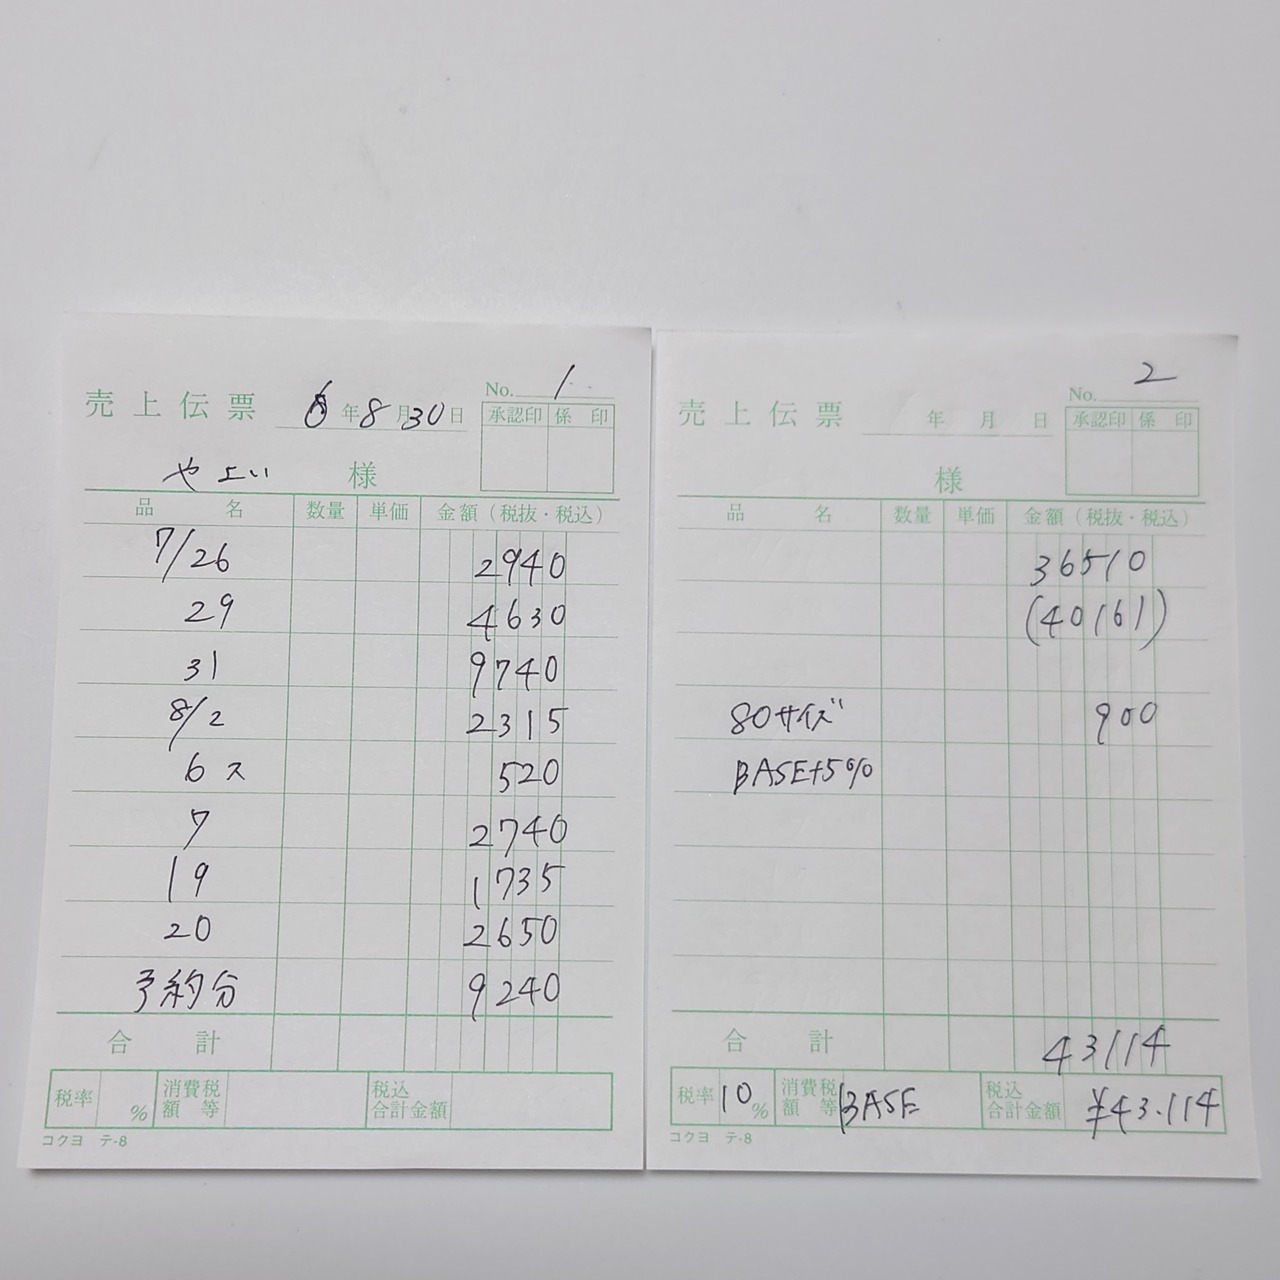 No. 1
売上伝票 6年8月30日
承認印 係印
やよい 様
品名 数量 単価 金額(税抜・税込)
7/26 2940
29 4630
31 9740
8/2 2315
6 ス 520
7 2740
19 1735
20 2650
予約分 9240
合計
税率 % 消費税額等 税込合計金額
コクヨ テ-8
No. 2
売上伝票 年 月 日
承認印 係印
様
品名 数量 単価 金額(税抜・税込)
36510
(40161)
80サイズ 900
BASE+5%
合計 43114
税率 10% 消費税額等 BASE 税込合計金額 ¥43.114
コクヨ テ-8